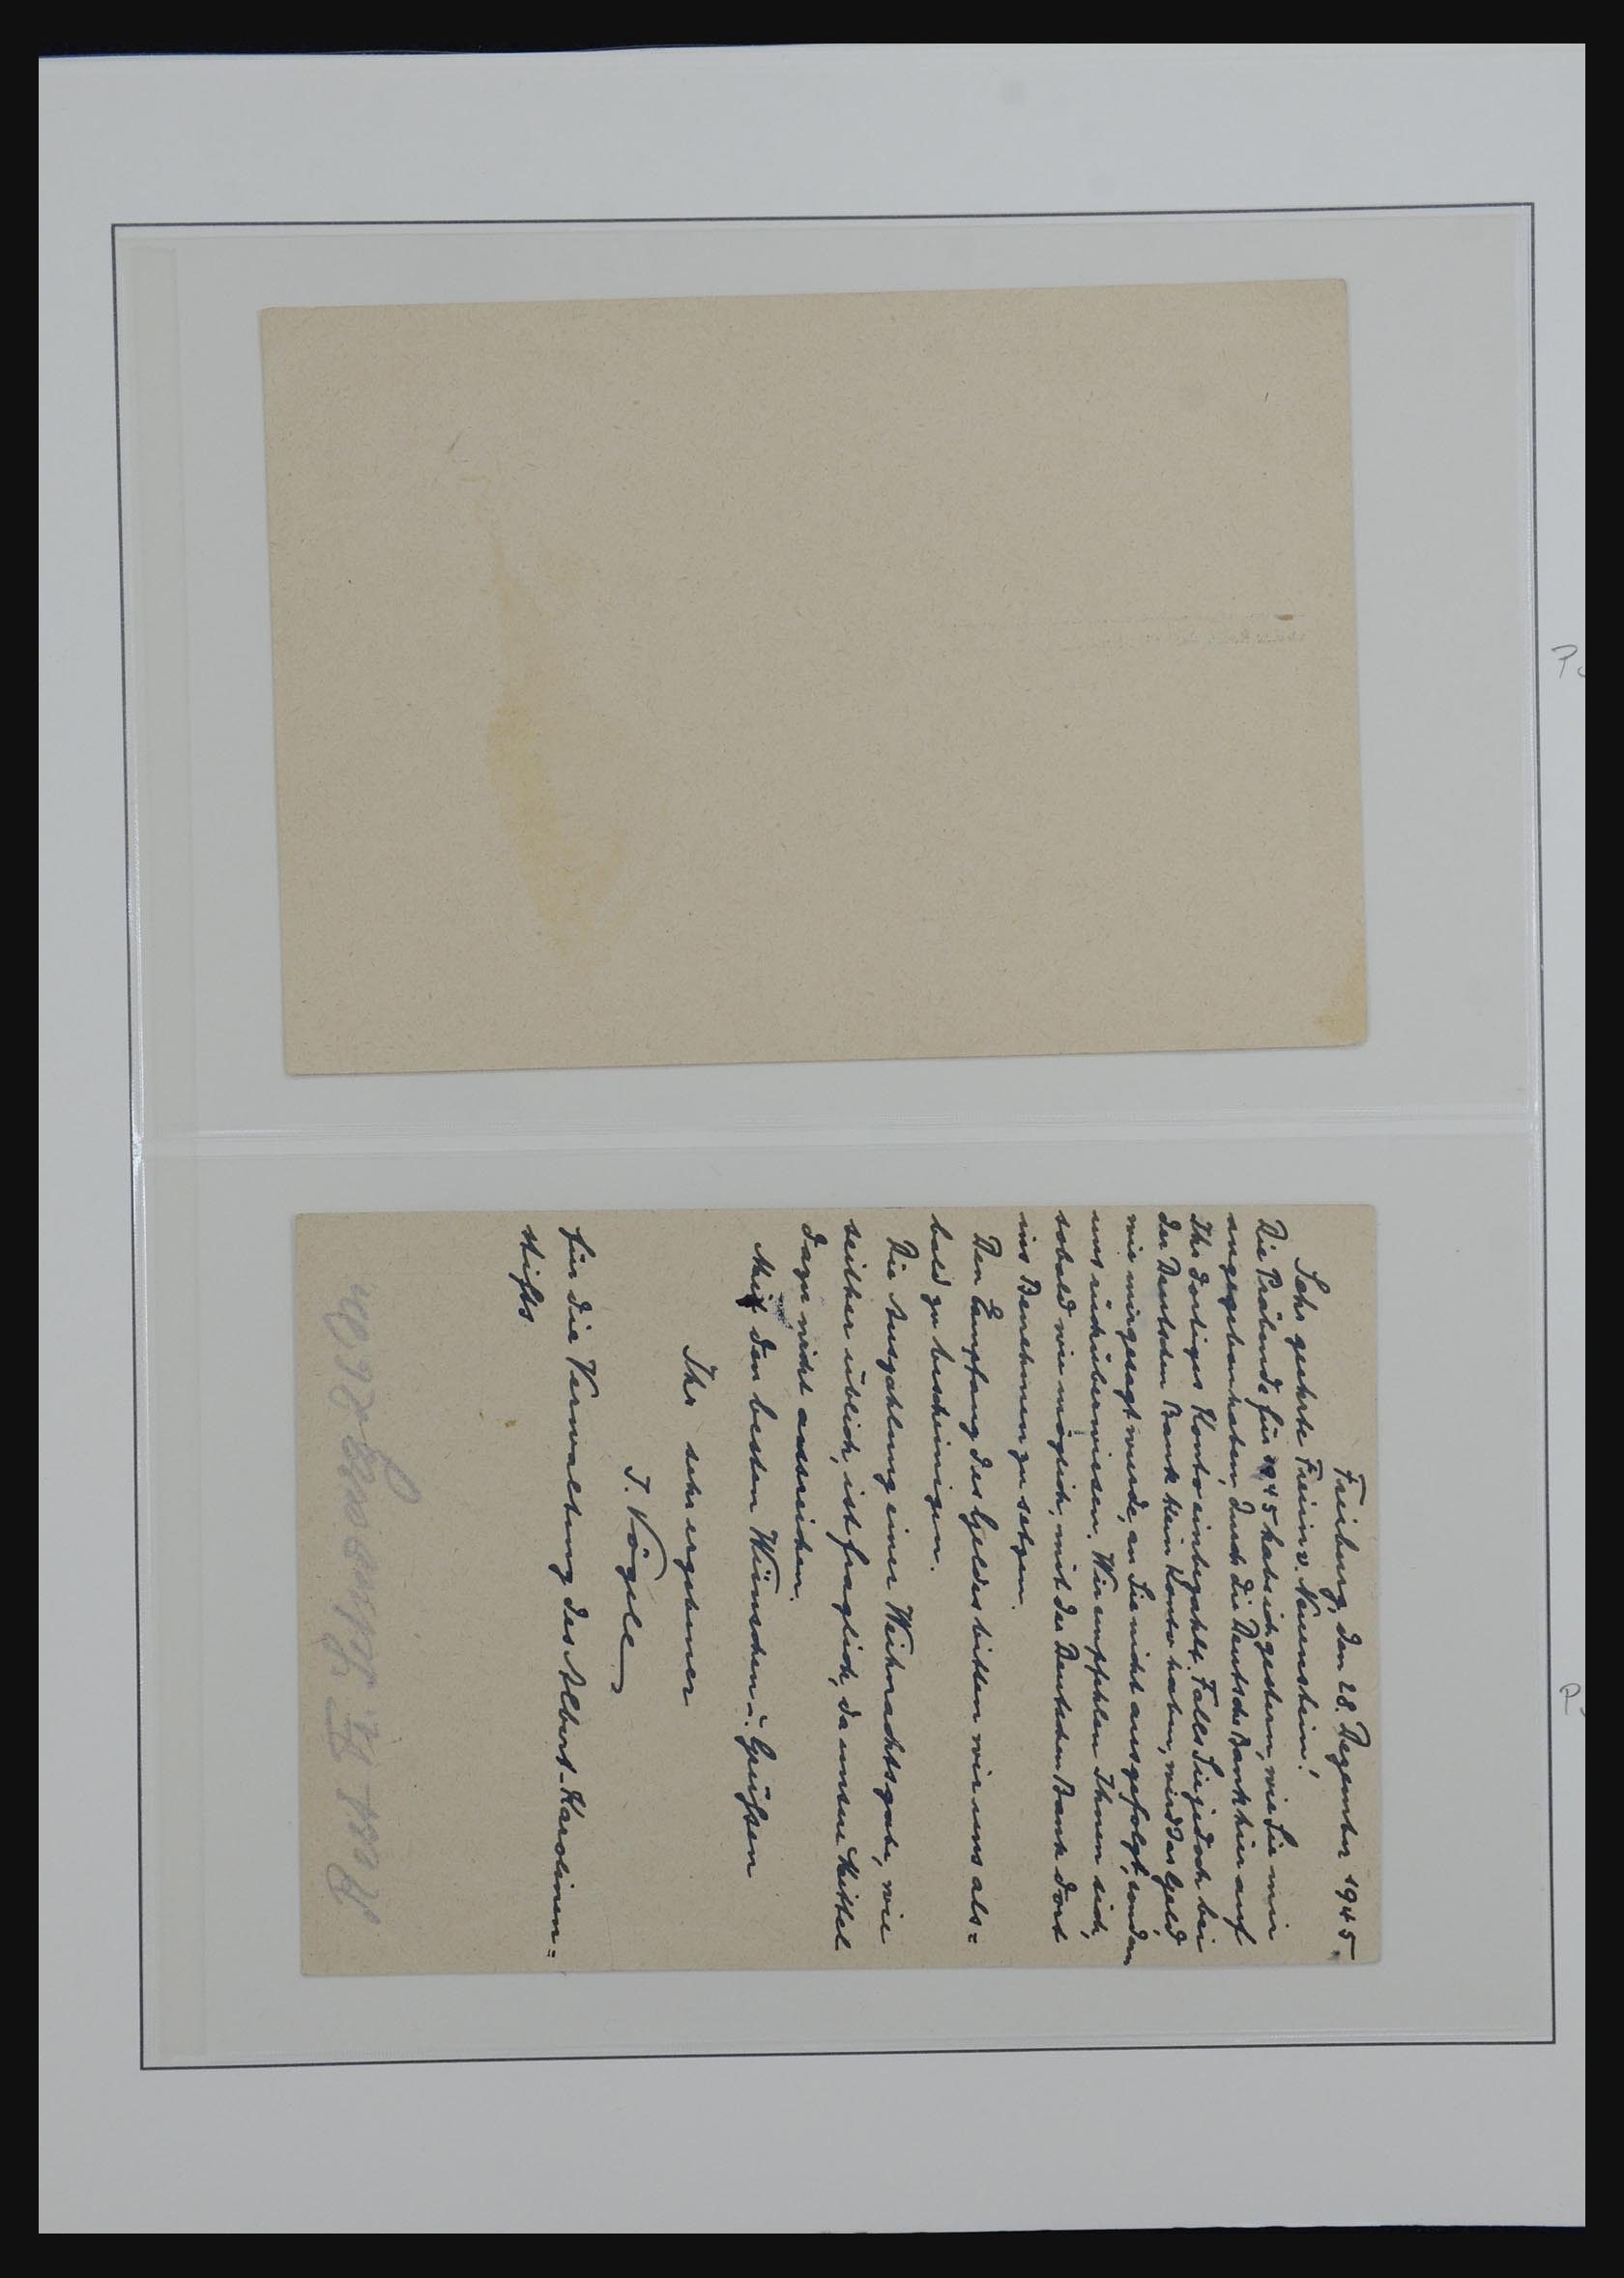 Freiburg, den 28. Dezember 1945.
Sehr geehrte Freiin v. Neuenstein!
Die Präbende für 1945 habe ich gestern, wie Sie mir
angegeben haben, durch die Deutsche Bank hier auf
Ihr dortiges Konto einbezahlt. Falls Sie jedoch bei
der Deutschen Bank kein Konto haben, wird das Geld,
wie mir gesagt wurde, an Sie nicht ausgefolgt, sondern
uns rücküberwiesen. Wir empfehlen Ihnen sich,
sobald wie möglich, mit der Deutschen Bank dort
ins Benehmen zu setzen.
Den Empfang des Geldes bitten wir uns als=
bald zu bescheinigen.
Die Auszahlung einer Weihnachtsgabe, wie
seither üblich, ist fraglich, da unsere Mittel
dazu nicht ausreichen.
Mit den besten Wünschen u. Grüßen
Ihr sehr ergebener
J. Vögele
für die Verwaltung des Albert-Karolinen=
stifts
Rest